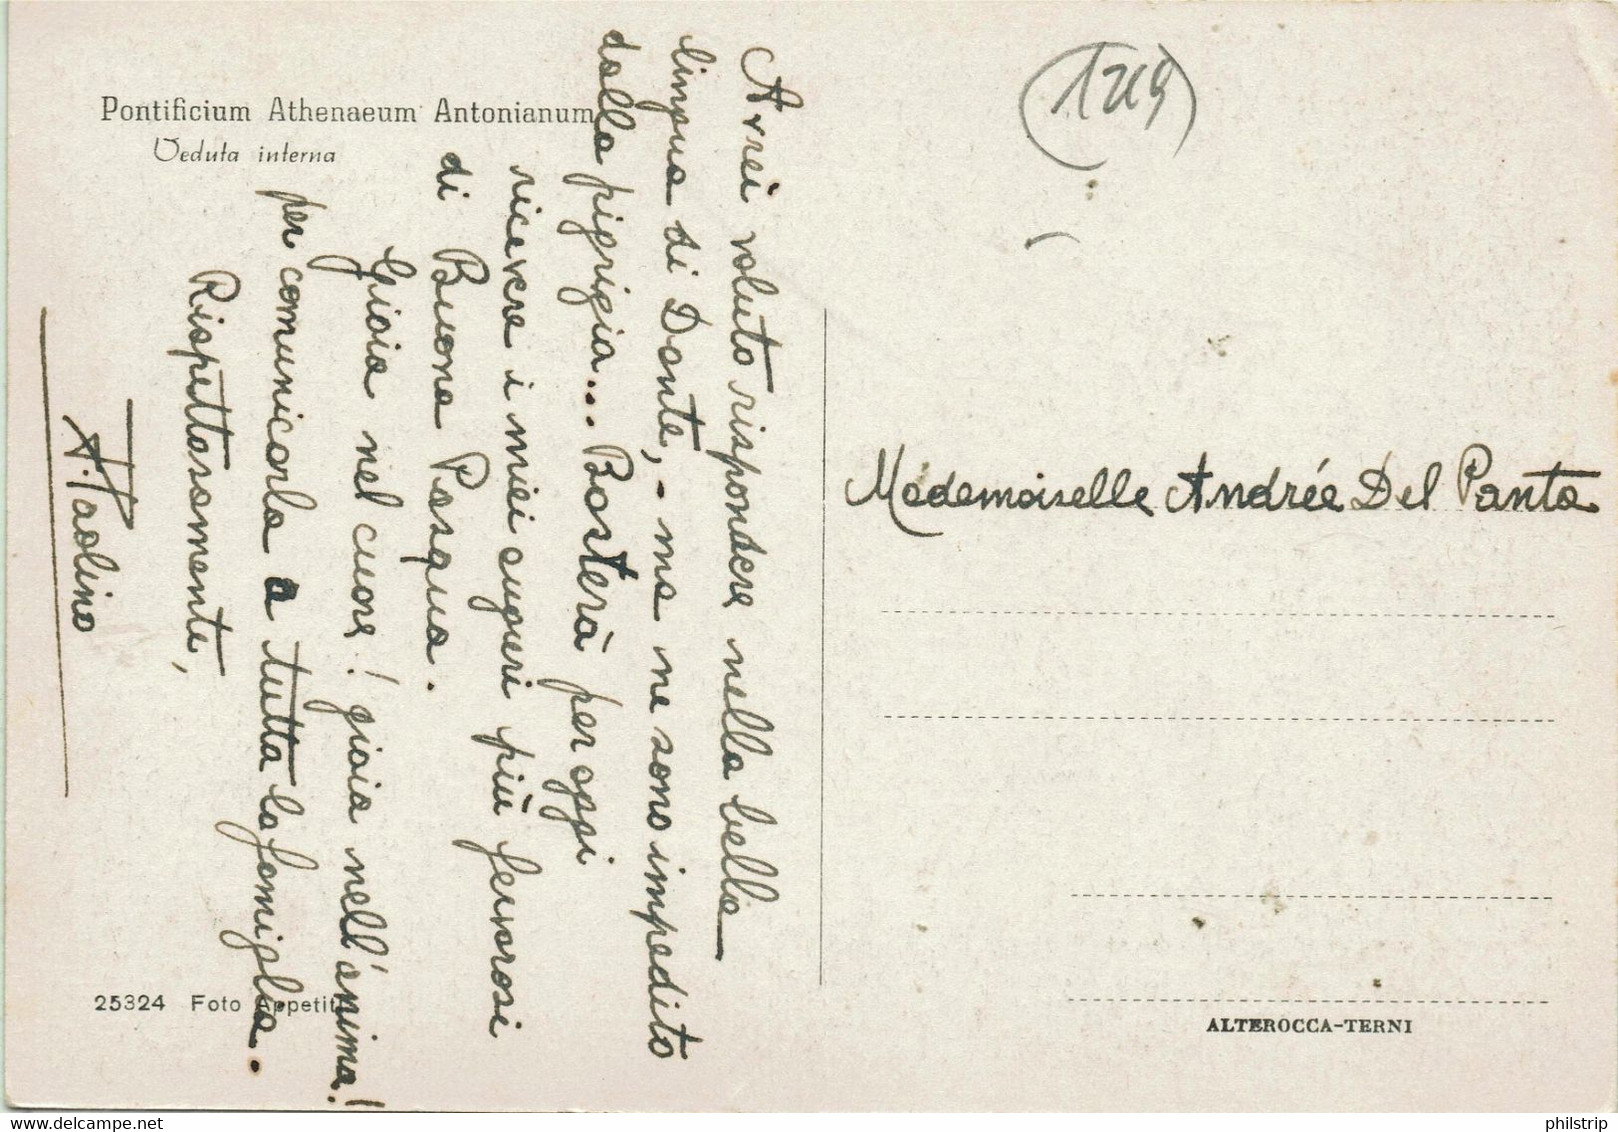 Pontificium Athenaeum Antonianum
Veduta interna
Avrei voluto rispondere nella bella
lingua di Dante, - ma ne sono impedito
dalla pigrigia... Basterà per oggi
ricevere i miei auguri più fervorosi
di Buona Pasqua.
Gioia nel cuore! gioia nell'anima!
per comunicarla a tutta la famiglia.
Rispettosamente,
Paolino
Mademoiselle Andrée Del Panta
25324 Foto Appetiti
ALTEROCCA-TERNI
philstrip
philstrip